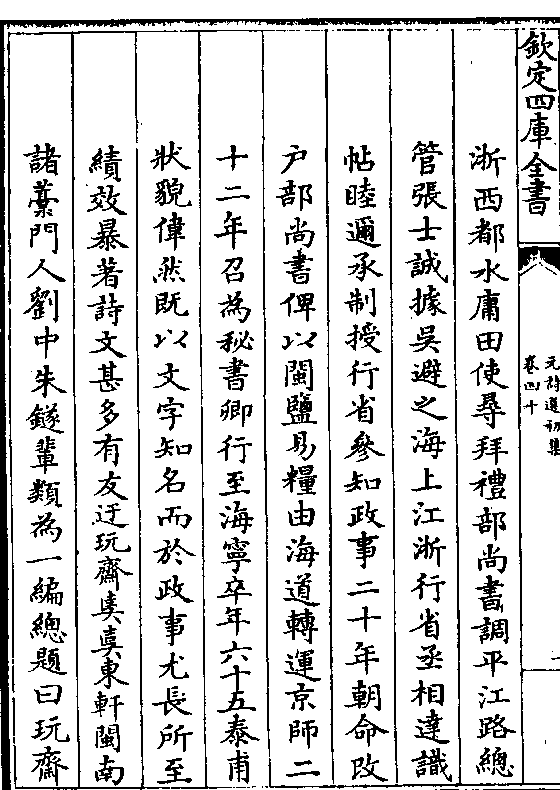 欽定四庫全書
元詩選初集
卷四十
浙西都水庸田使尋拜禮部尚書調平江路總
管張士誠據吳避之海上江浙行省丞相達識
帖睦邇承制授行省參知政事二十年朝命改
戶部尚書俾以閩鹽易糧由海道轉運京師二
十二年召為秘書卿行至海寧卒年六十五泰甫
狀貌偉然既以文字知名而於政事尤長所至
績效暴著詩文甚多有友迂玩齋奚奚東軒閩南
諸藁門人劉中朱鐩輩類為一編總題曰玩齋